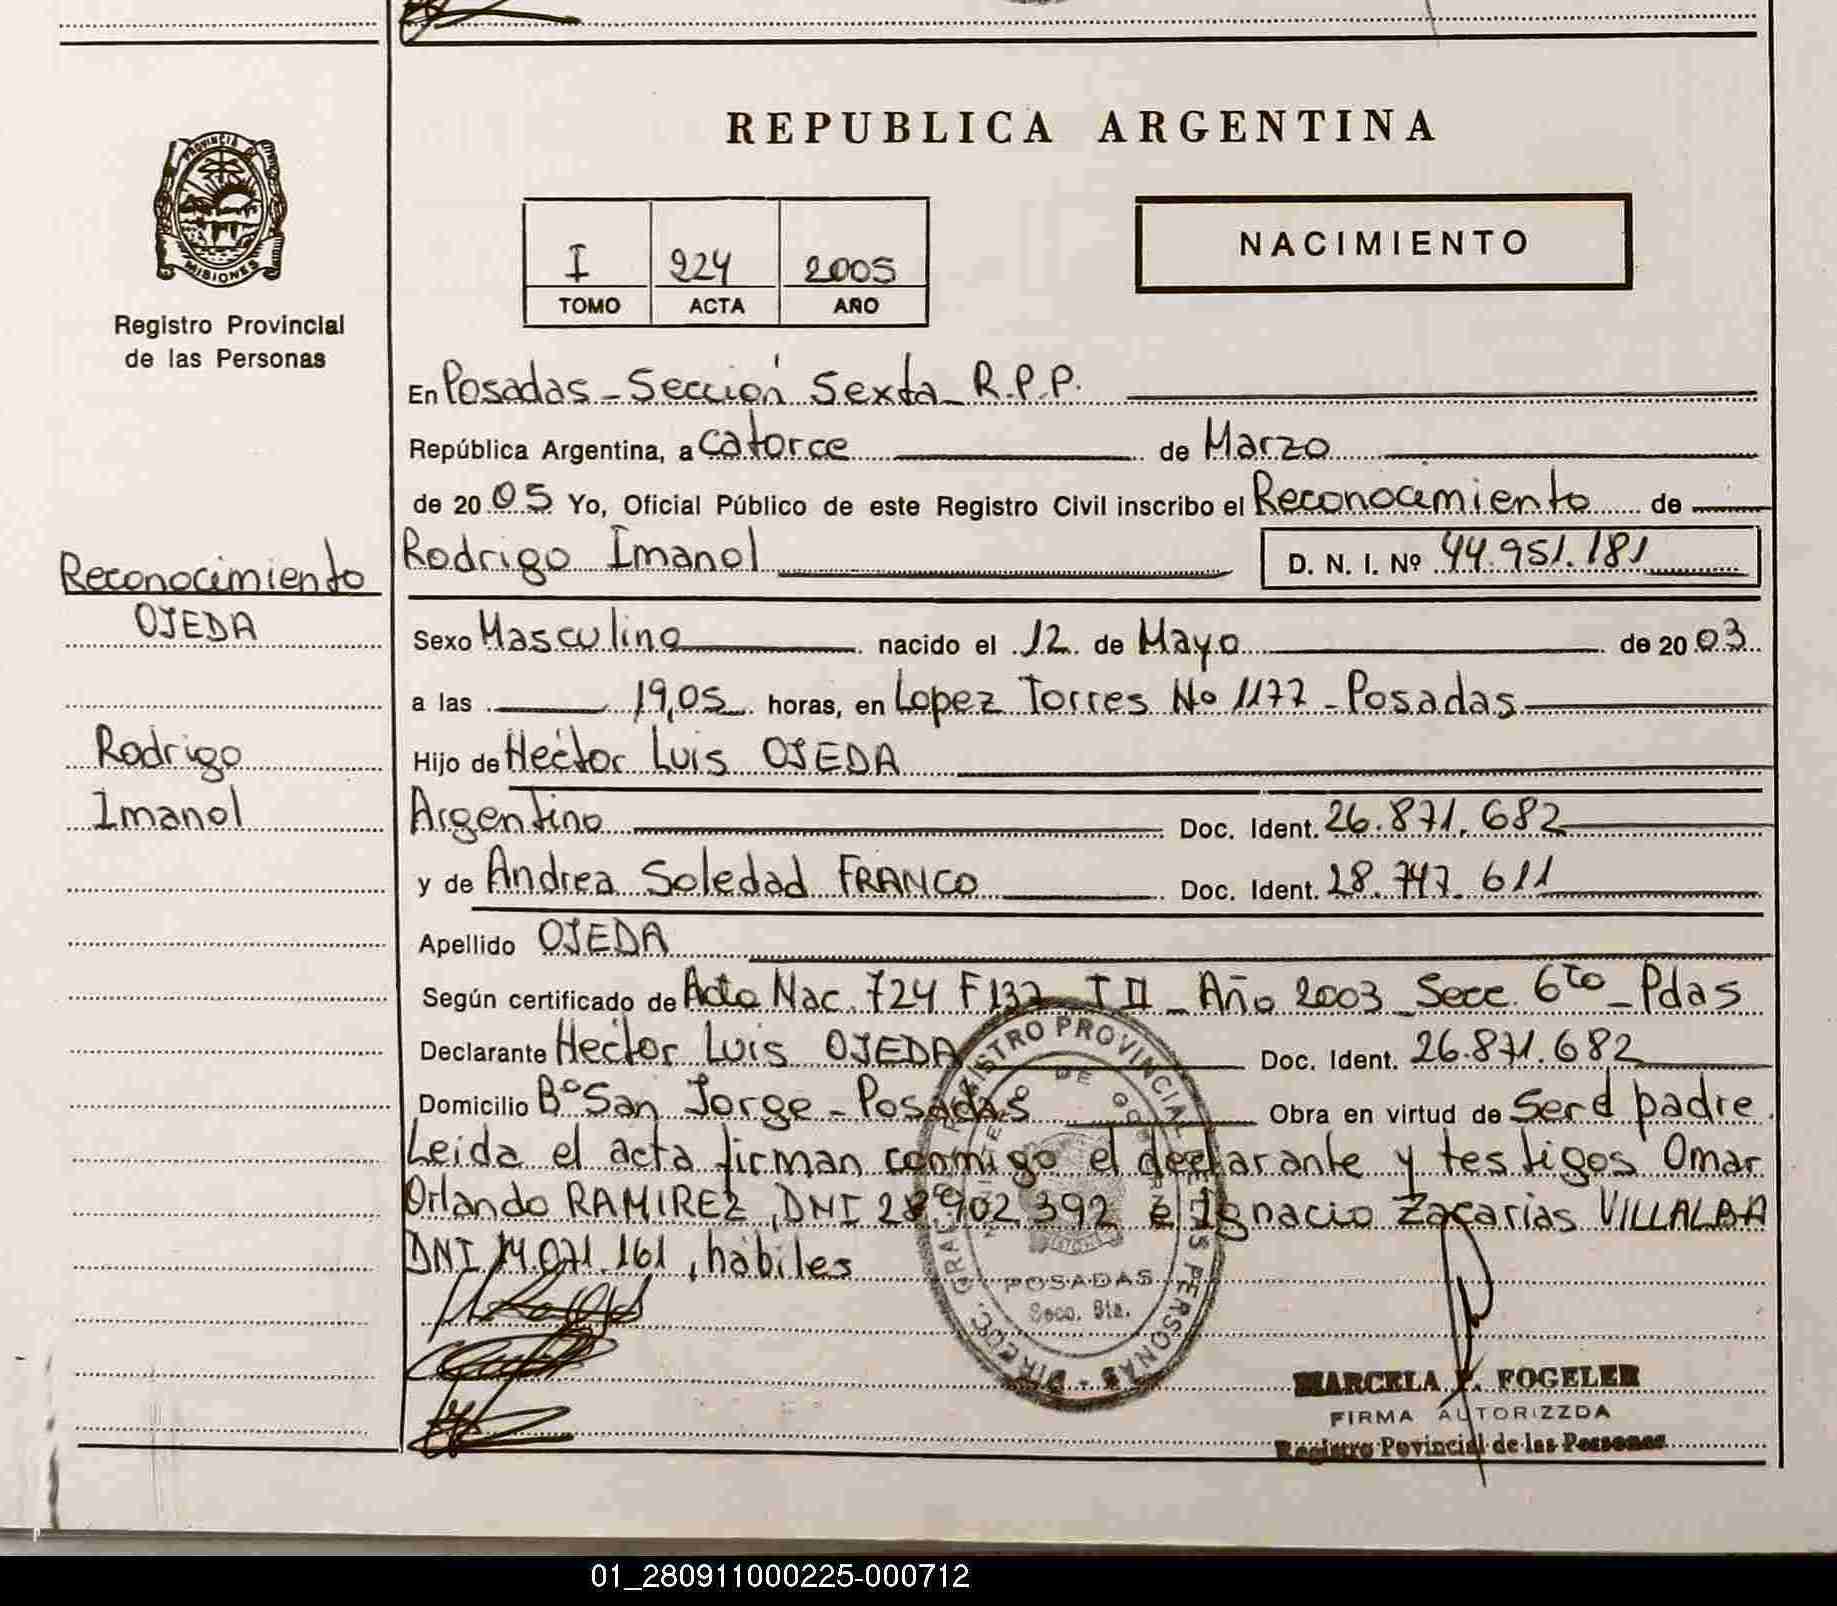 REPUBLICA ARGENTINA
PROVINCIA DE MISIONES
Registro Provincial
de las Personas
I 224 2005
TOMO ACTA AÑO
NACIMIENTO
En Posadas - Sección Sexta - R.P.P.
República Argentina, a catorce de Marzo
de 20 05 Yo, Oficial Público de este Registro Civil inscribo el Reconocimiento de
Rodrigo Imanol D. N. I. Nº 44.951.181
Reconocimiento
OJEDA
Rodrigo
Imanol
Sexo Masculino nacido el 12 de Mayo de 20 03
a las 19,05 horas, en Lopez Torres No 1177 - Posadas
Hijo de Hector Luis OJEDA
Argentino Doc. Ident. 26.871.682
y de Andrea Soledad FRANCO Doc. Ident. 28.747.611
Apellido OJEDA
Según certificado de Acta Nac. 724 F 137 T II - Año 2003 - Secc. 6ta - Pdas
Declarante Hector Luis OJEDA Doc. Ident. 26.871.682
Domicilio Bº San Jorge - Posadas Obra en virtud de ser el padre.
Leida el acta firman conmigo el declarante y testigos Omar
Orlando RAMIREZ, DNI 28.902.392 e Ignacio Zacarias VILLALBA
DNI 14.071.161, hábiles
DIRECC. GRAL. REGISTRO PROVINCIAL DE LAS PERSONAS
POSADAS
Secc. 6ta.
MARCELA F. FOGELER
FIRMA AUTORIZZDA
Registro Povincial de las Personas
01_280911000225-000712